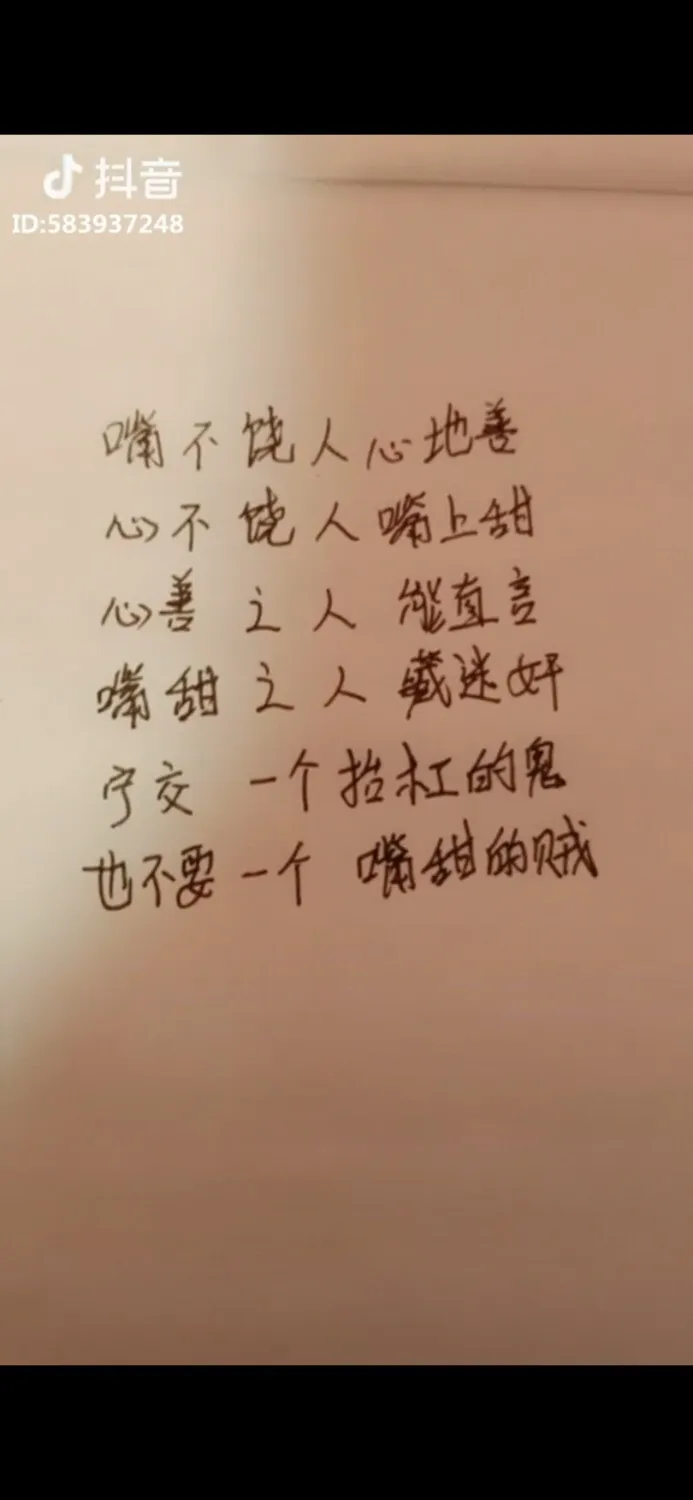 抖音
ID:583937248
嘴不饶人心地善
心不饶人嘴上甜
心善之人能直言
嘴甜之人藏迷奸
宁交一个抬杠的鬼
也不要一个嘴甜的贼